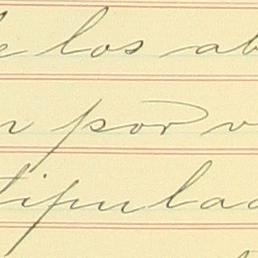 e los ab
n por v
tipulad